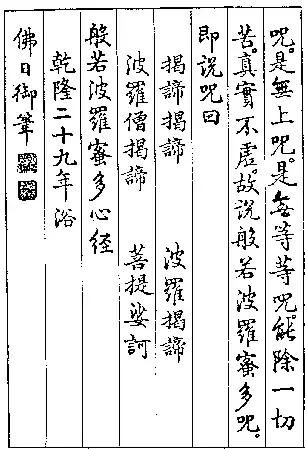 咒。是無上咒。是無等等咒。能除一切
苦。真實不虛。故説般若波羅蜜多咒。
即説咒曰
揭諦揭諦　波羅揭諦
波羅僧揭諦　菩提娑訶
般若波羅蜜多心經
乾隆二十九年浴
佛日御筆